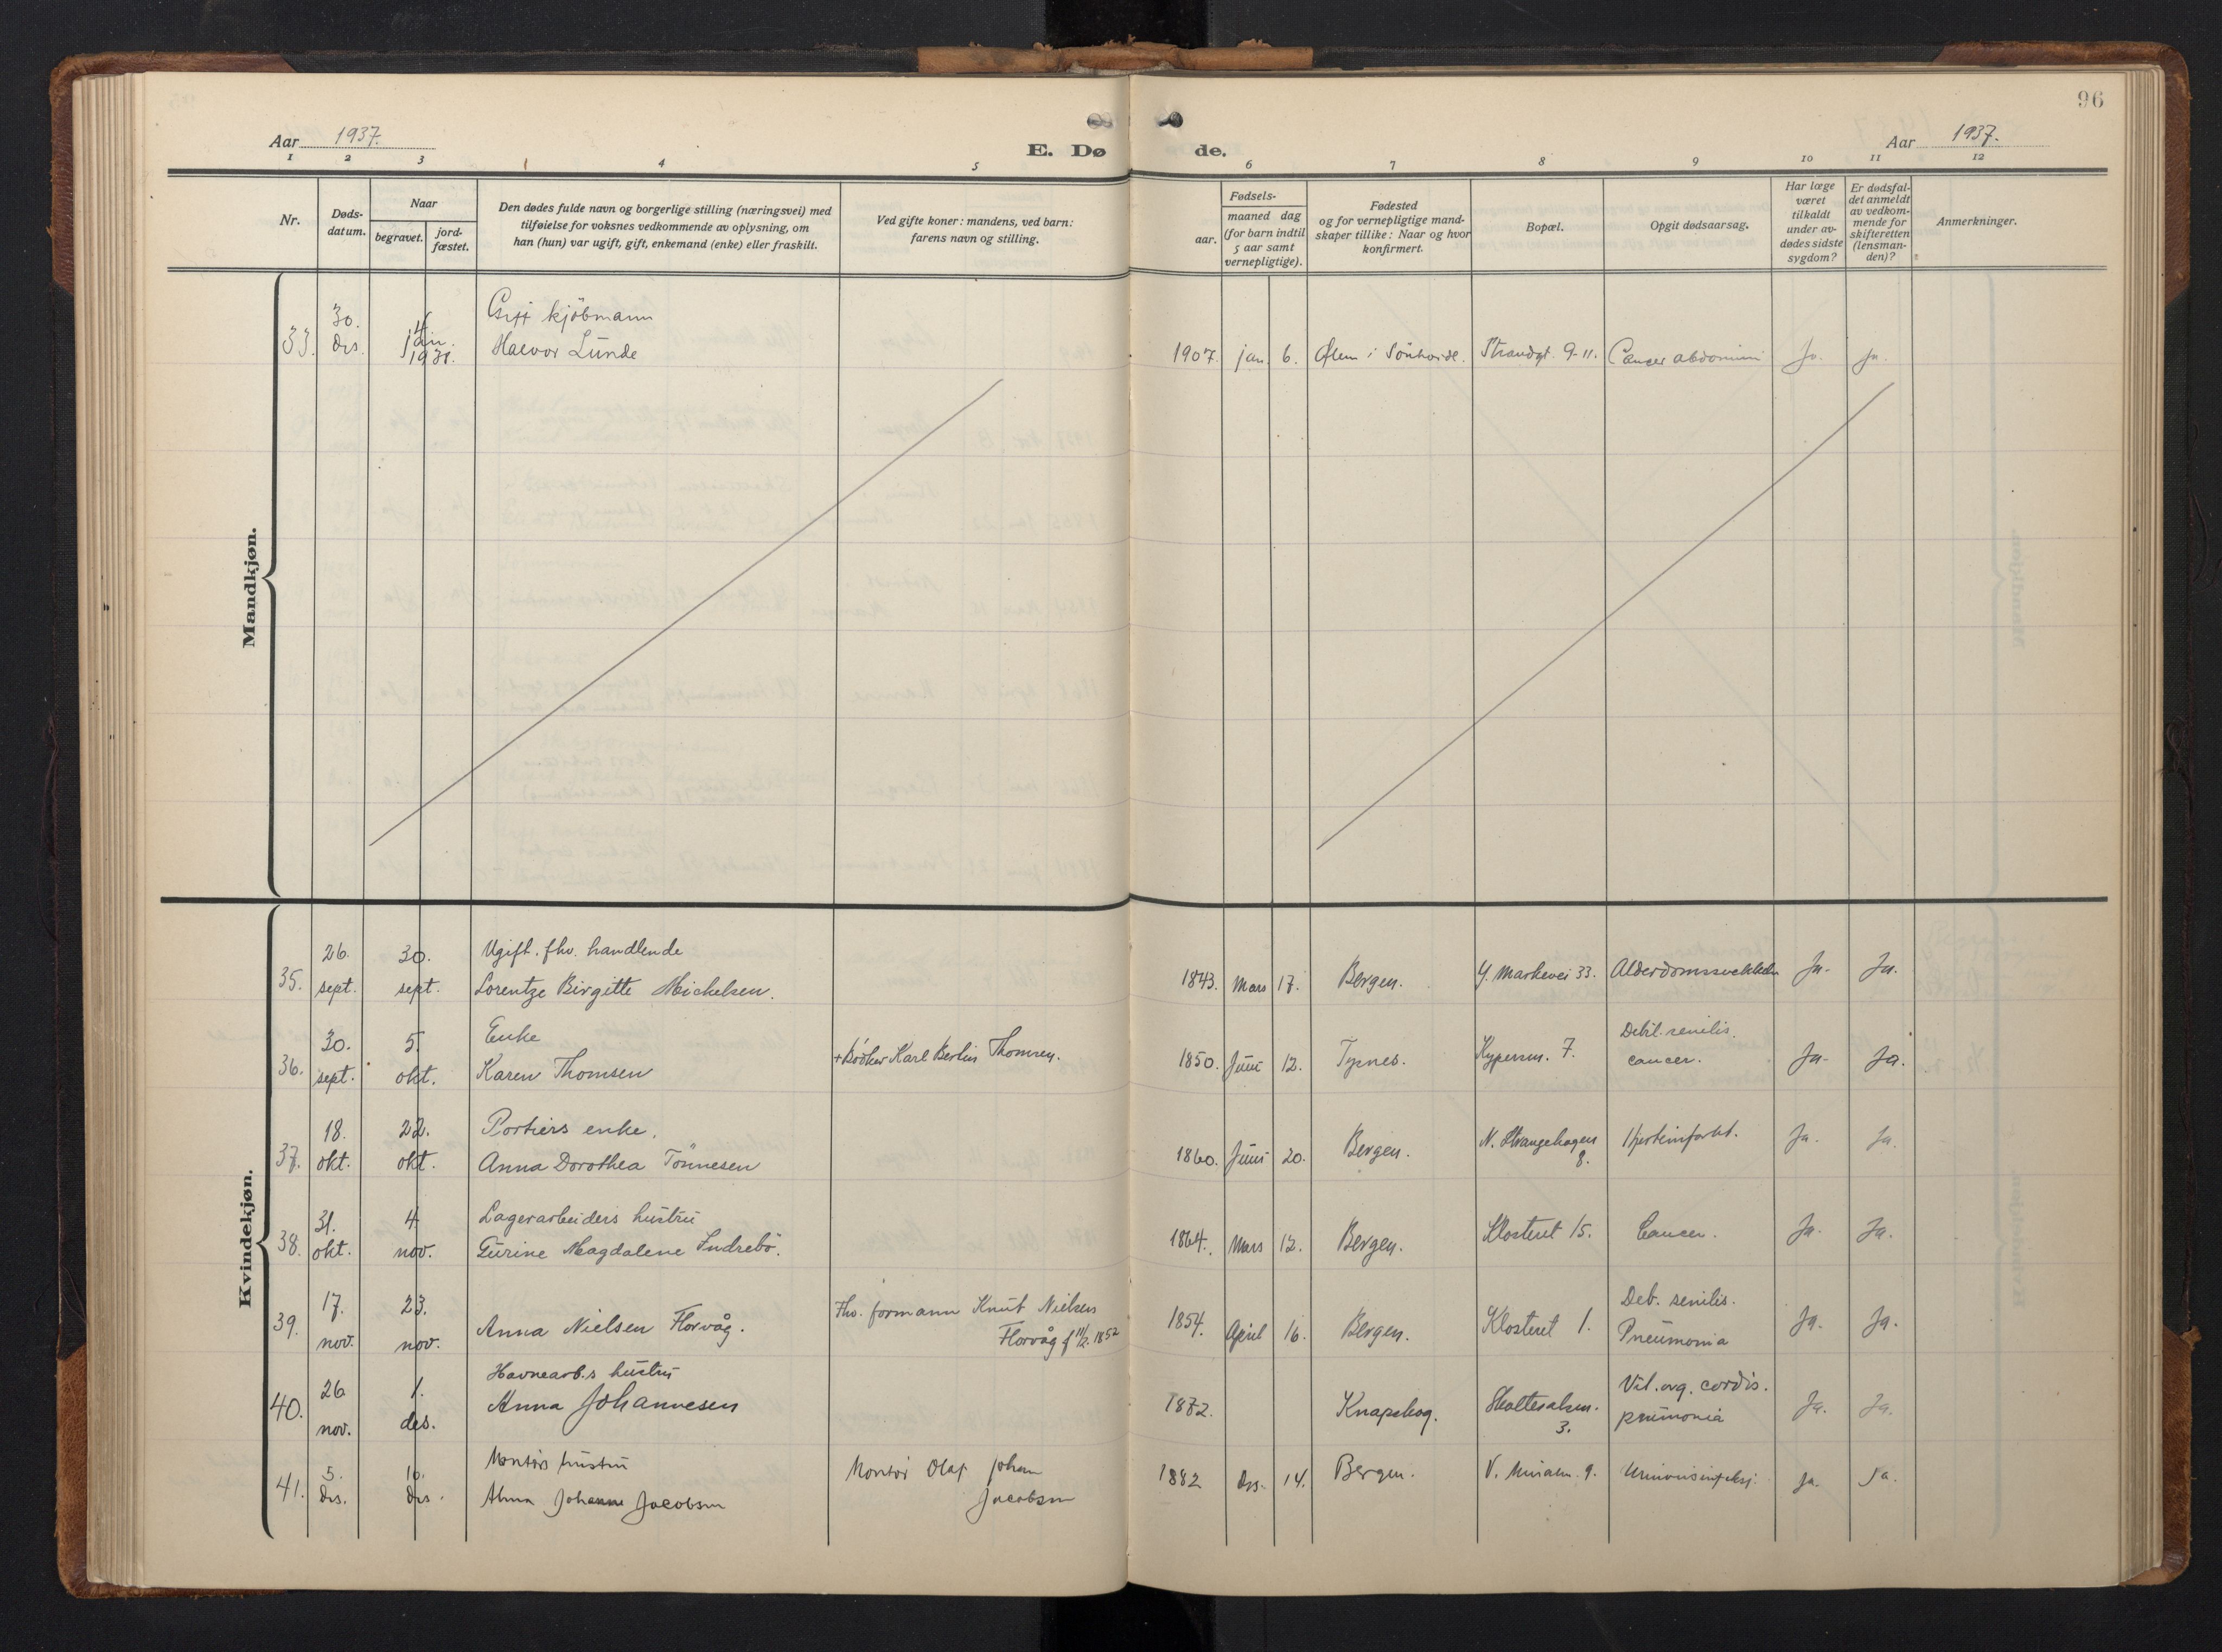 96
Aar 1937.
E. Døde.
Aar 1937.
1 2 3 4 5 6 7 8 9 10 11 12
Nr.
Døds-
datum.
Naar
begravet.
jord-
fæstet.
Den dødes fulde navn og borgerlige stilling (næringsvei) med
tilføielse for voksnes vedkommende av oplysning, om
han (hun) var ugift, gift, enkemand (enke) eller fraskilt.
Ved gifte koner: mandens, ved barn:
farens navn og stilling.
aar.
Fødsels-
maaned dag
(for barn indtil
5 aar samt
vernepligtige).
Fødested
og for vernepligtige mand-
skaper tillike: Naar og hvor
konfirmert.
Bopæl.
Opgit dødsaarsag.
Har læge
været
tilkaldt
under av-
dødes sidste
sygdom?
Er dødsfal-
det anmeldt
av vedkom-
mende for
skifteretten
(lensman-
den)?
Anmerkninger.
Mandkjøn.
30. 4 Gift kjöbmann
33. des. jan. Halvor Lunde 1907. jan. 6. Ølen i Sönhordl. Strandgt. 9-11. Cancer abdomini Ja. Ja.
1938.
Kvindekjøn.
26. 30. Ugift. fhv. handlende
35. sept. sept. Lorentze Birgitte Michelsen. 1843. Mars 17. Bergen. Y. Markevei 33. Alderdomssvekkelse Ja. Ja.
30. 5. Enke Debil. senilis.
36. sept. okt. Karen Thomsen + Bödker Karl Berlin Thomsen. 1850. Juni 12. Tysnes. Kypersm. 7. cancer. Ja. Ja.
18. 22. Portiers enke.
37. okt. okt. Anna Dorothea Tönnesen 1860. Juni 20. Bergen. N. Strangehagen 8. Hjerteinfarkt. Ja. Ja.
31. 4 Lagerarbeiders hustru
38. okt. nov. Turine Magdalene Indrebö. 1864. Mars 12. Bergen. Klosteret 15. Cancer. Ja. Ja.
17. 23. Fhv. formann Knut Nielsen Deb. senilis.
39. nov. nov. Anna Nielsen Florvåg. Florvåg f 11/2. 1852 1854. April 16. Bergen. Klosteret 1. Pneumonia Ja. Ja.
26 1. Havnearb.s hustru Vit. org. cordis.
40. nov. des. Anna Johannesen 1872. Knapskog. 3. pneumonia Ja. Ja.
5. 10. Montörs hustru Montör Olaf Johan
41. des. des. Alma Johanne Jacobsen Jacobsen 1882 des. 14. Bergen. V. Muralm. 9. Ja. Ja.